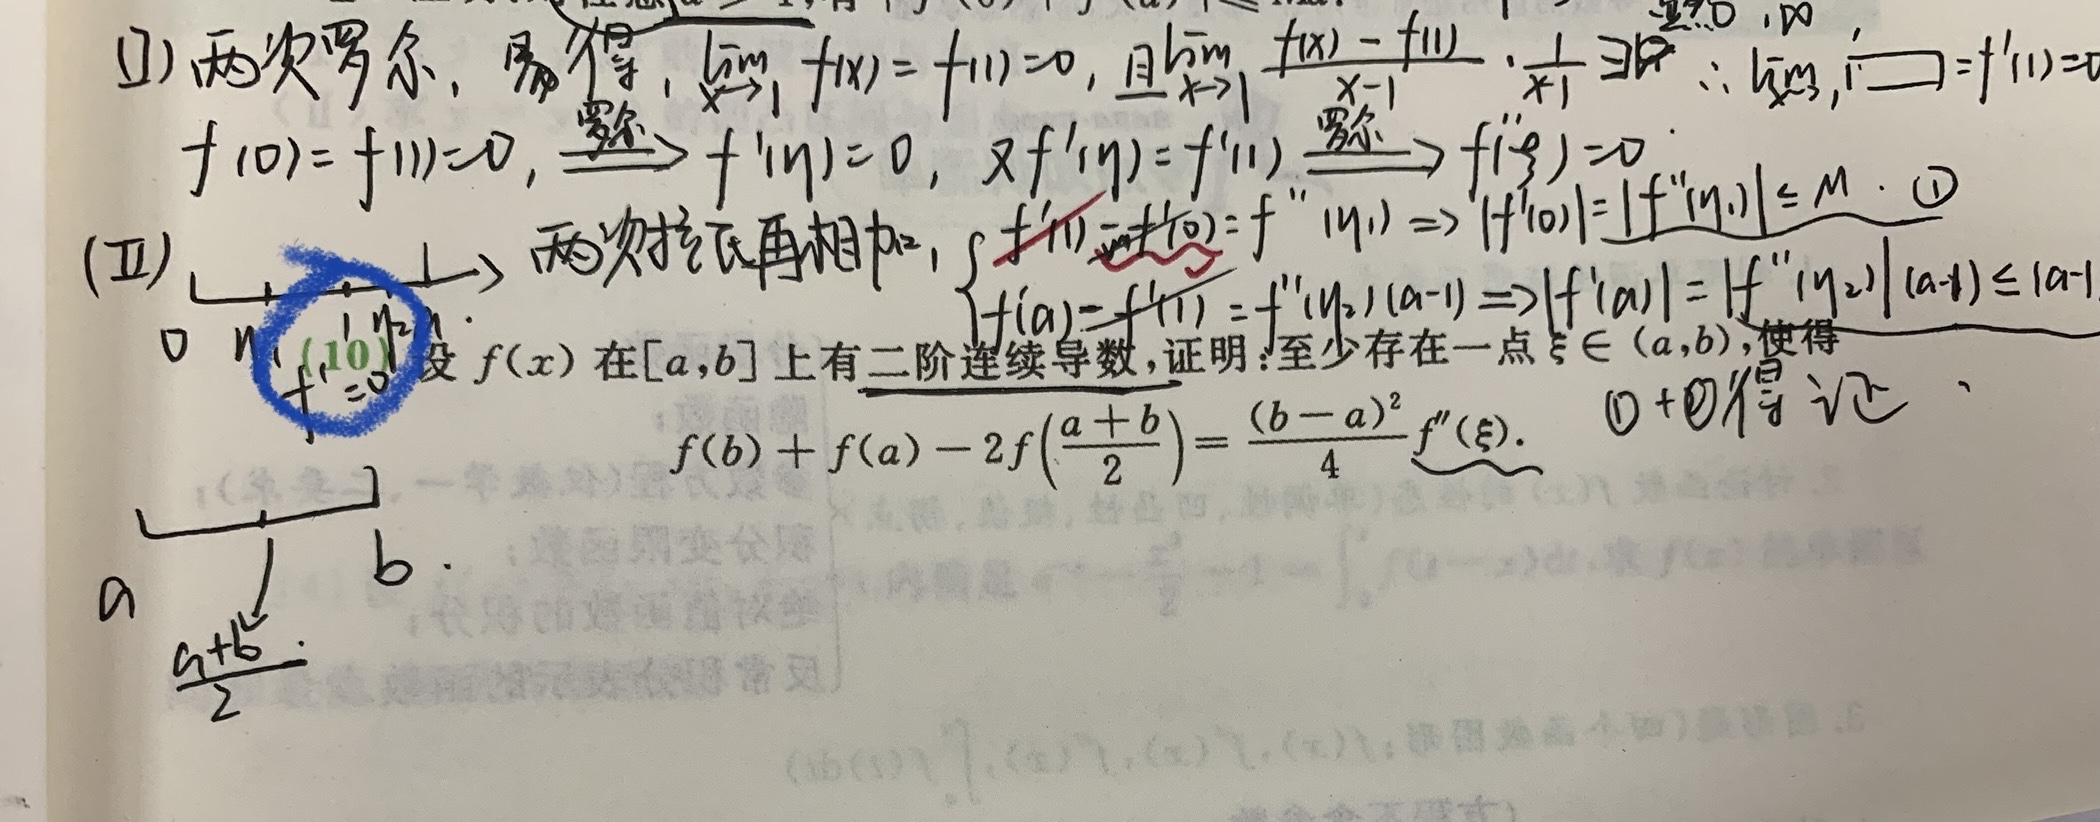 (I) 两次罗尔, 易得, lim x→1 f(x) = f(1) = 0, 且 lim x→1 (f(x) - f(1))/(x-1) · 1/(x-1) ∃ ∴ lim x→1 □ = f'(1) = 0
f(0) = f(1) = 0, 罗尔 ⟹ f'(η) = 0, 又 f'(η) = f'(1) 罗尔 ⟹ f''(ξ) = 0
(II) 两次拉氏再相加, { f'(1) - f'(0) = f''(η₁) ⇒ |f'(0)| = |f''(η₁)| ≤ M. ①
f'(a) - f'(1) = f''(η₂)(a-1) ⇒ |f'(a)| = |f''(η₂)|(a-1) ≤ (a-1
0 η₁ 1 η₂
f' = 0
(10) 设 f(x) 在[a,b]上有二阶连续导数,证明:至少存在一点 ξ ∈ (a,b),使得
f(b) + f(a) − 2f((a+b)/2) = (b−a)²/4 f''(ξ).
①+②得证
a b.
(a+b)/2